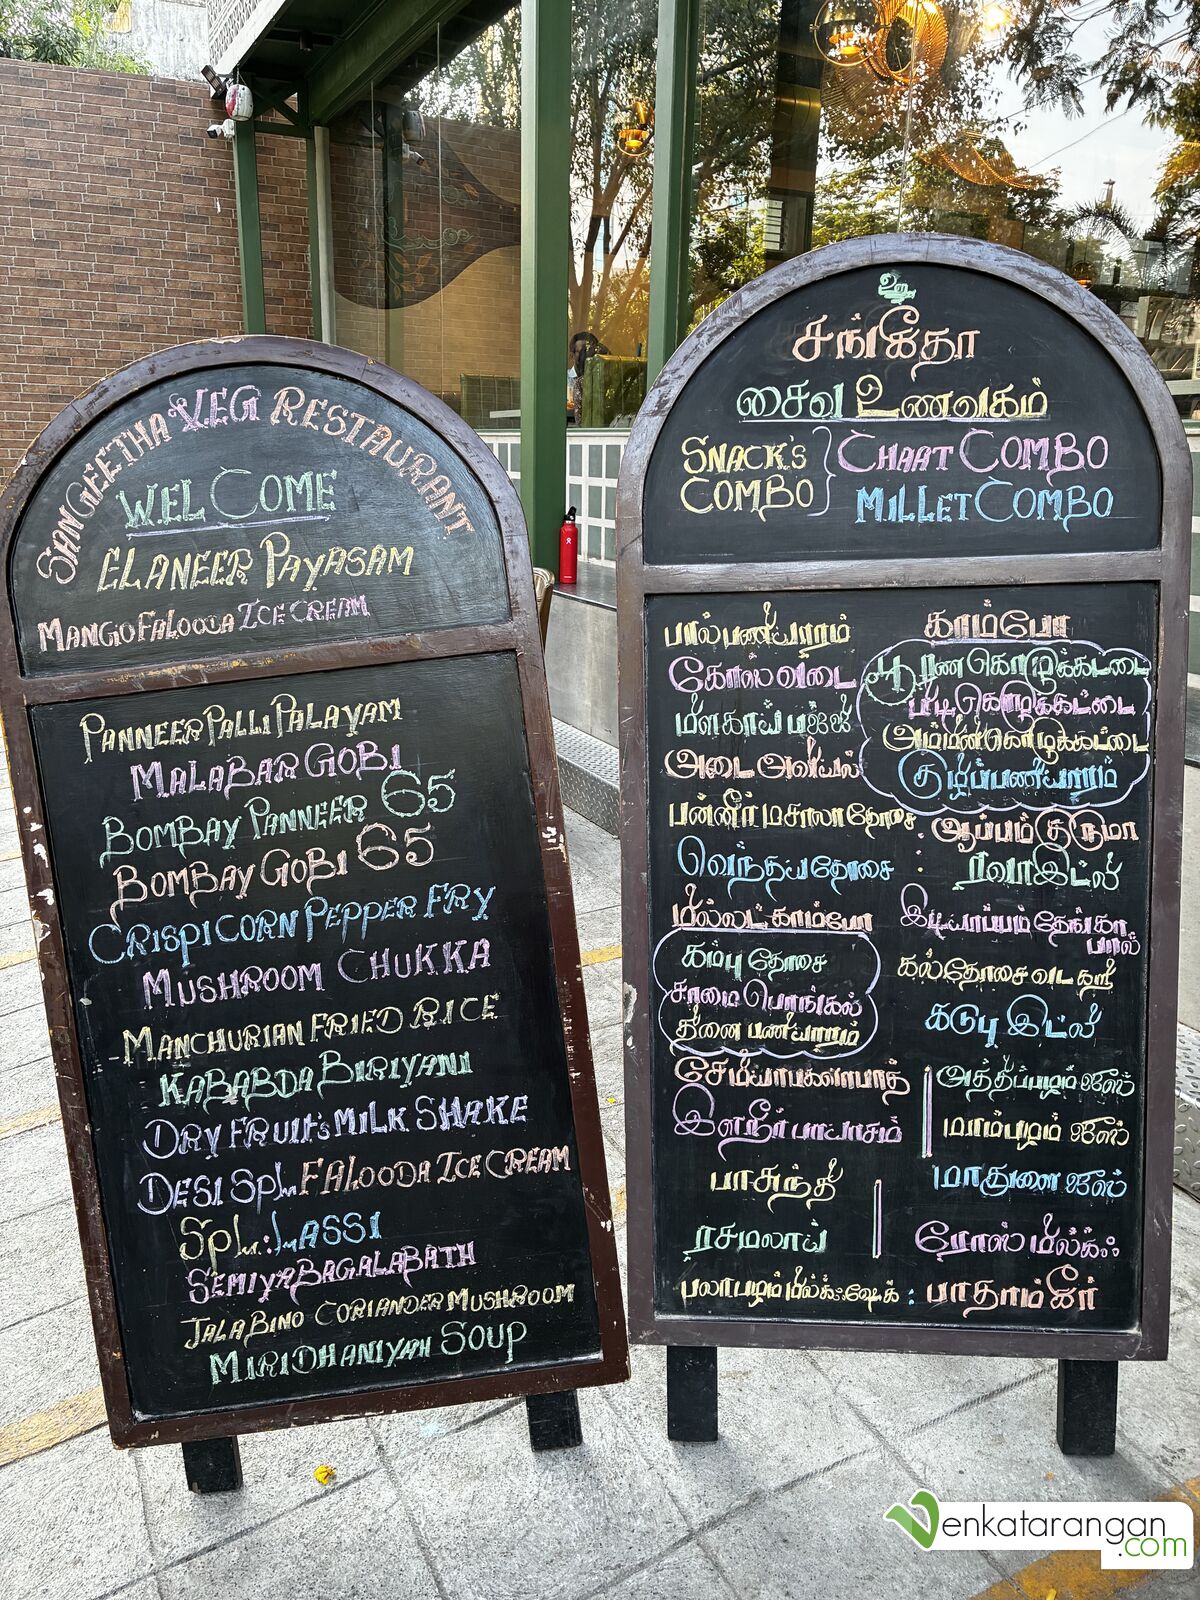 SANGEETHA VEG RESTAURANT
WELCOME
ELANEER PAYASAM
MANGO FALOODA ICE CREAM
PANNEER PALLIPALAYAM
MALABAR GOBI
BOMBAY PANNEER 65
BOMBAY GOBI 65
CRISPI CORN PEPPER FRY
MUSHROOM CHUKKA
-MANCHURIAN FRIED RICE
KABABDA BIRIYANI
DRY FRUIT'S MILK SHAKE
DESI SPL FALOODA ICE CREAM
SPL: LASSI
SEMIYA BAGALABATH
JALABINO CORIANDER MUSHROOM
MIRIDHANIYAH SOUP
உ
சங்கீதா
சைவ உணவகம்
SNACK'S COMBO } CHAAT COMBO
MILLET COMBO
பால் பணியாரம்
கோஸ் வடை
மிளகாய் பஜ்ஜி
அடை அவியல்
பன்னீர் மசலா தோசை
வெந்தய தோசை
மில்லட் காம்போ
கம்பு தோசை
சாமை பொங்கல்
தினை பணியாரம்
சேமியா பகளாபாத்
இளநீர் பாயாசம்
பாசுந்தி
ரசமலாய்
பலாபழம் மில்க் ஷேக் :
காம்போ
பூரண கொழுக்கட்டை
பிடி கொழுக்கட்டை
அம்மினி கொழுக்கட்டை
குழிப்பணியாரம்
: ஆப்பம் குருமா
: ரவா இட்லி
இடியாப்பம் தேங்கா பால்
கல்தோசை வடகறி
கடுபு இட்லி
அத்திப்பழம் ஜீஸ்
மாம்பழம் ஜீஸ்
மாதுளை ஜீஸ்
ரோஸ் மில்க்
பாதாம்கீர்
Venkatarangan
.com